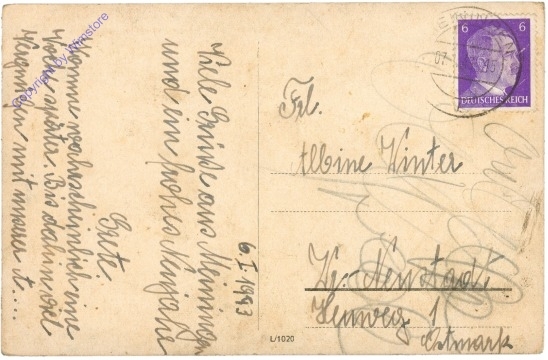 Viele Grüße aus Meiningen
und ein frohes Neujahr
Grete.
Komme wahrscheinlich eine
Woche später. Bis dahin viel
Vergnügen mit
6. I. 1943
Frl.
Albine Winter
Wr.-Neustadt
Heuweg 1
Ostmark
6 6
DEUTSCHES REICH
07
L/1020
Copyright by Wimstore